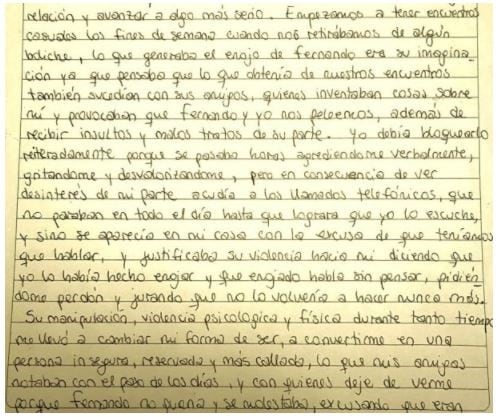 relación y avanzar a algo más serio. Empezamos a tener encuentros
casuales los fines de semana cuando nos retirábamos de algún
boliche, lo que generaba el enojo de fernando era su imagina-
ción ya que pensaba que lo que obtenía de nuestros encuentros
también sucedían con sus amigos, quienes inventaban cosas sobre
mí y provocaban que Fernando y yo nos peleemos, además de
recibir insultos y malos tratos de su parte. Yo debía bloquearlo
reiteradamente porque se pasaba horas agrediendome verbalmente,
gritandome y desvalorizandome, pero en consecuencia de ver
desinterés de mi parte acudía a los llamados telefónicos, que
no paraban en todo el día hasta que lograra que yo lo escuche,
y sino se aparecía en mi casa con la excusa de que teníamos
que hablar, y justificaba su violencia hacia mí diciendo que
yo lo había hecho enojar y que enojado habla sin pensar, pidién-
dome perdón y jurando que no lo volvería a hacer nunca más.
Su manipulación, violencia psicologica y física durante tanto tiempo
me llevó a cambiar mi forma de ser, a convertirme en una
persona insegura, reservada y más callada, lo que mis amigos
notaban con el paso de los días, y con quienes deje de verme
porque Fernando no quería y se molestaba, excusando que eran